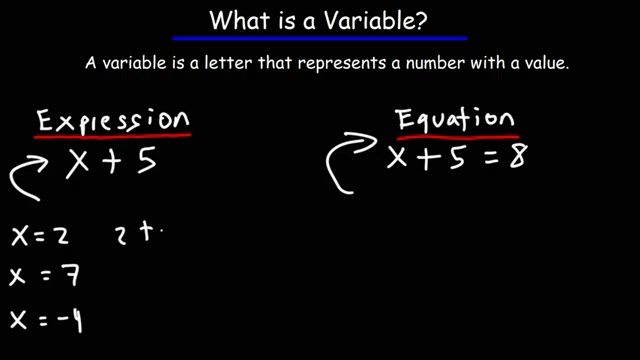 What is a Variable?
A variable is a letter that represents a number with a value.
Expression
x + 5
x = 2 2 +
x = 7
x = -4
Equation
x + 5 = 8